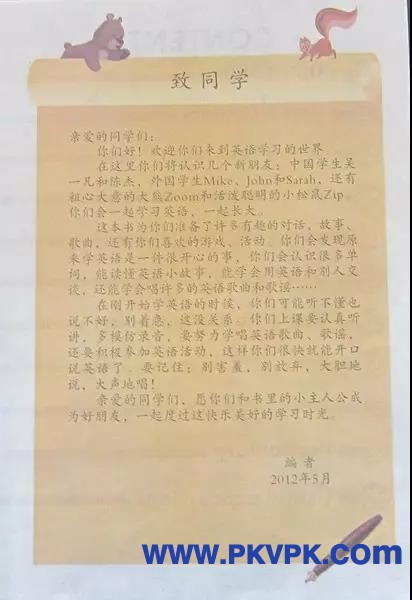 致同学
亲爱的同学们：
你们好！欢迎你们来到英语学习的世界。
在这里你们将认识几个新朋友：中国学生吴
一凡和陈杰，外国学生Mike、John和Sarah，还有
粗心大意的大熊Zoom和活泼聪明的小松鼠Zip。
你们会一起学习英语，一起长大。
这本书为你们准备了许多有趣的对话、故事、
歌曲，还有你们喜欢的游戏、活动。你们会发现原
来学英语是一件很开心的事，你们会认识很多单
词，能读懂英语小故事，能学会用英语和别人交
谈，还能学会唱许多的英语歌曲和歌谣……
在刚开始学英语的时候，你们可能听不懂也
说不好，别着急，这没关系。你们上课要认真听
讲，多模仿录音，要努力学唱英语歌曲、歌谣，
还要积极参加英语活动，这样你们很快就能开口
说英语了。要记住：别害羞，别放弃，大胆地
说，大声地唱！
亲爱的同学们，愿你们和书里的小主人公成
为好朋友，一起度过这快乐美好的学习时光。
编者
2012年5月
WWW.PKVPK.com